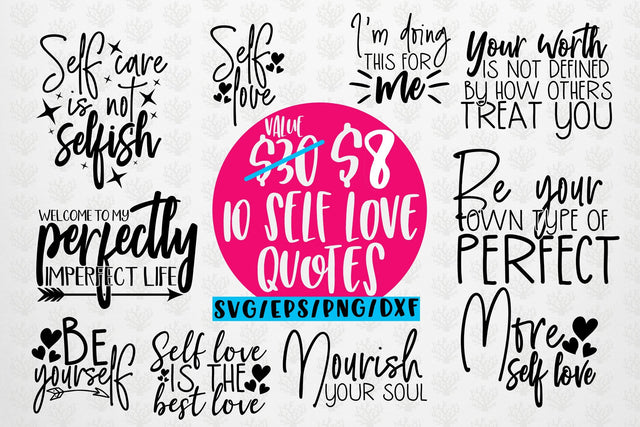 Self care
is not
selfish
Self
love
I'm doing
THIS FOR
me
Your worth
IS NOT DEFINED
BY HOW OTHERS
TREAT YOU
VALUE
$30 $8
10 SELF LOVE
QUOTES
SVG/EPS/PNG/DXF
WELCOME TO MY
perfectly
IMPERFECT LIFE
Be your
OWN TYPE OF
PERFECT
BE
yourself
Self love
IS THE
best love
Nourish
YOUR SOUL
More
self love